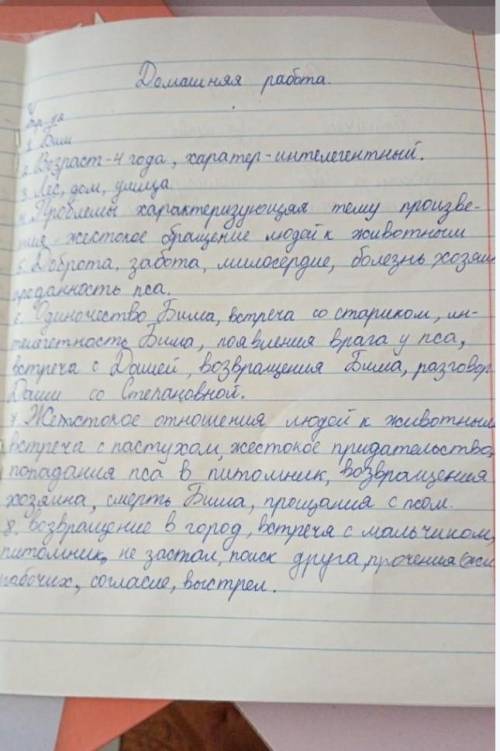 Домашняя работа.
1. Бим
2. Возраст-4 года, характер-интелегентный.
3. Лес, дом, улица
4. Проблемы характеризующяя тему произве-
ния - жестокое обращение людей к животным
5. Доброта, забота, милосердие, болезнь хозяин
преданность пса.
6. Одиночество Бима, встреча со стариком, ин-
телегетность Бима, появления врага у пса,
встреча с Дашей, возвращения Бима, разговор
Даши со Степановной.
7. Жестокое отношения людей к животным
встреча с пастухом, жестокое придательство,
попадания пса в питомник, возвращения
хозяина, смерть Бима, прощания с псом.
8. Возвращение в город, встреча с мальчиком,
питомник, не застал, поиск друга, прочения
рабочих, согласие, выстрел.